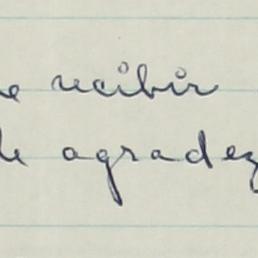 e recibir
le agradez